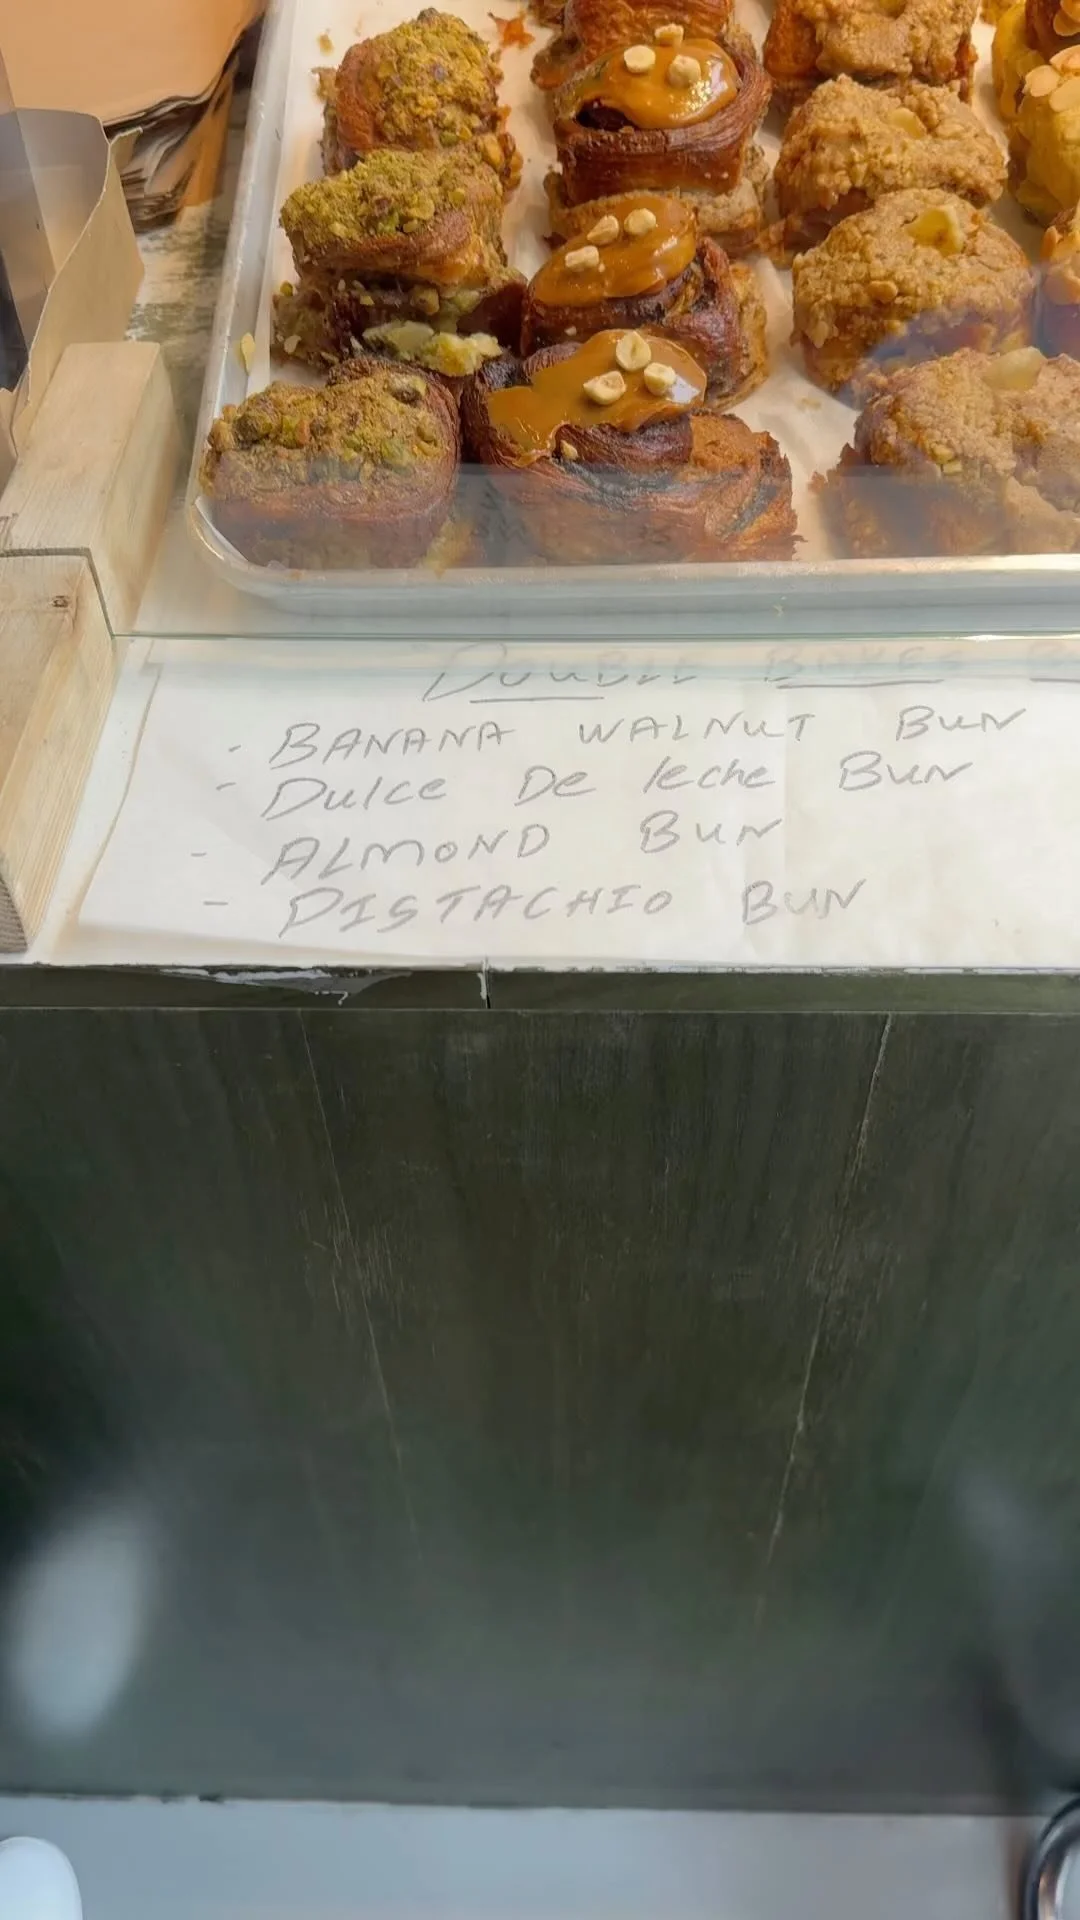 DOUBLE BAKES
- BANANA WALNUT BUN
- Dulce De leche BUN
- ALMOND BUN
- PISTACHIO BUN